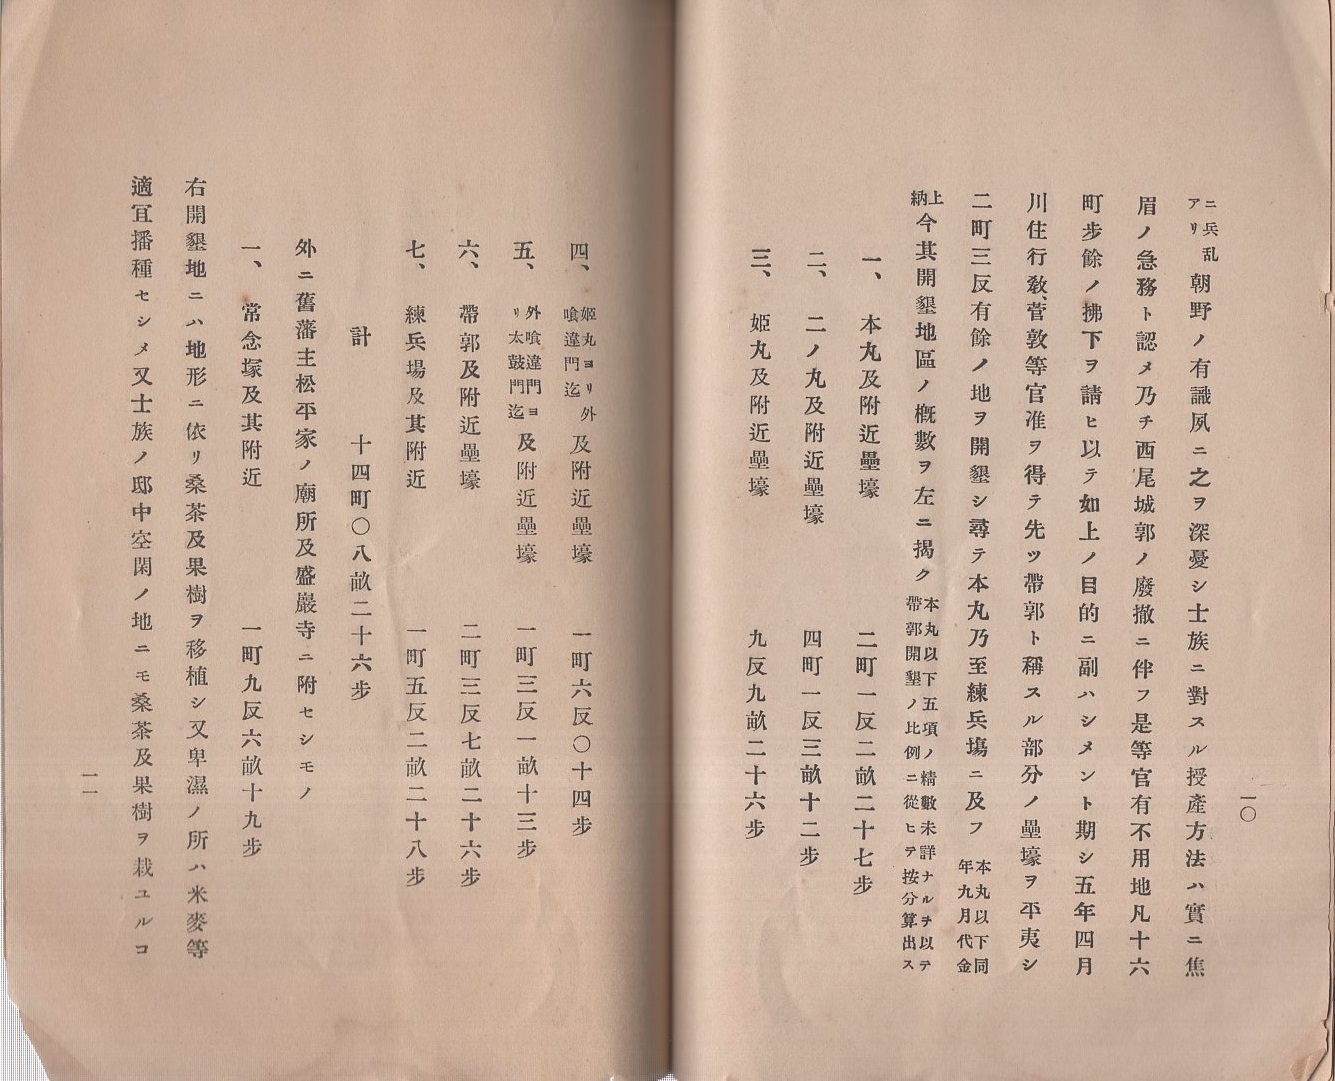 一〇
ニ兵乱アリ朝野ノ有識夙ニ之ヲ深憂シ士族ニ對スル授產方法ハ實ニ焦
眉ノ急務ト認メ乃チ西尾城郭ノ廢撤ニ伴フ是等官有不用地凡十六
町步餘ノ拂下ヲ請ヒ以テ如上ノ目的ニ副ハシメント期シ五年四月
川住行敎、菅敦等官准ヲ得テ先ツ帶郭ト稱スル部分ノ壘壕ヲ平夷シ
二町三反有餘ノ地ヲ開墾シ尋テ本丸乃至練兵塲ニ及フ本丸以下同年九月代金
上納今其開墾地區ノ槪數ヲ左ニ揭ク本丸以下五項ノ精數未詳ナルヲ以テ帶郭開墾ノ比例ニ從ヒテ按分算出ス
一、本丸及附近壘壕 二町一反二畝二十七步
二、二ノ丸及附近壘壕 四町一反三畝十二步
三、姬丸及附近壘壕 九反九畝二十六步
四、姬丸ヨリ外喰違門迄及附近壘壕 一町六反〇十四步
五、外喰違門ヨリ太鼓門迄及附近壘壕 一町三反一畝十三步
六、帶郭及附近壘壕 二町三反七畝二十六步
七、練兵場及其附近 一町五反二畝二十八步
計 十四町〇八畝二十六步
外ニ舊藩主松平家ノ廟所及盛巖寺ニ附セシモノ
一、常念塚及其附近 一町九反六畝十九步
右開墾地ニハ地形ニ依リ桑茶及果樹ヲ移植シ又卑濕ノ所ハ米麥等
適宜播種セシメ又士族ノ邸中空閑ノ地ニモ桑茶及果樹ヲ栽ユルコ
一一